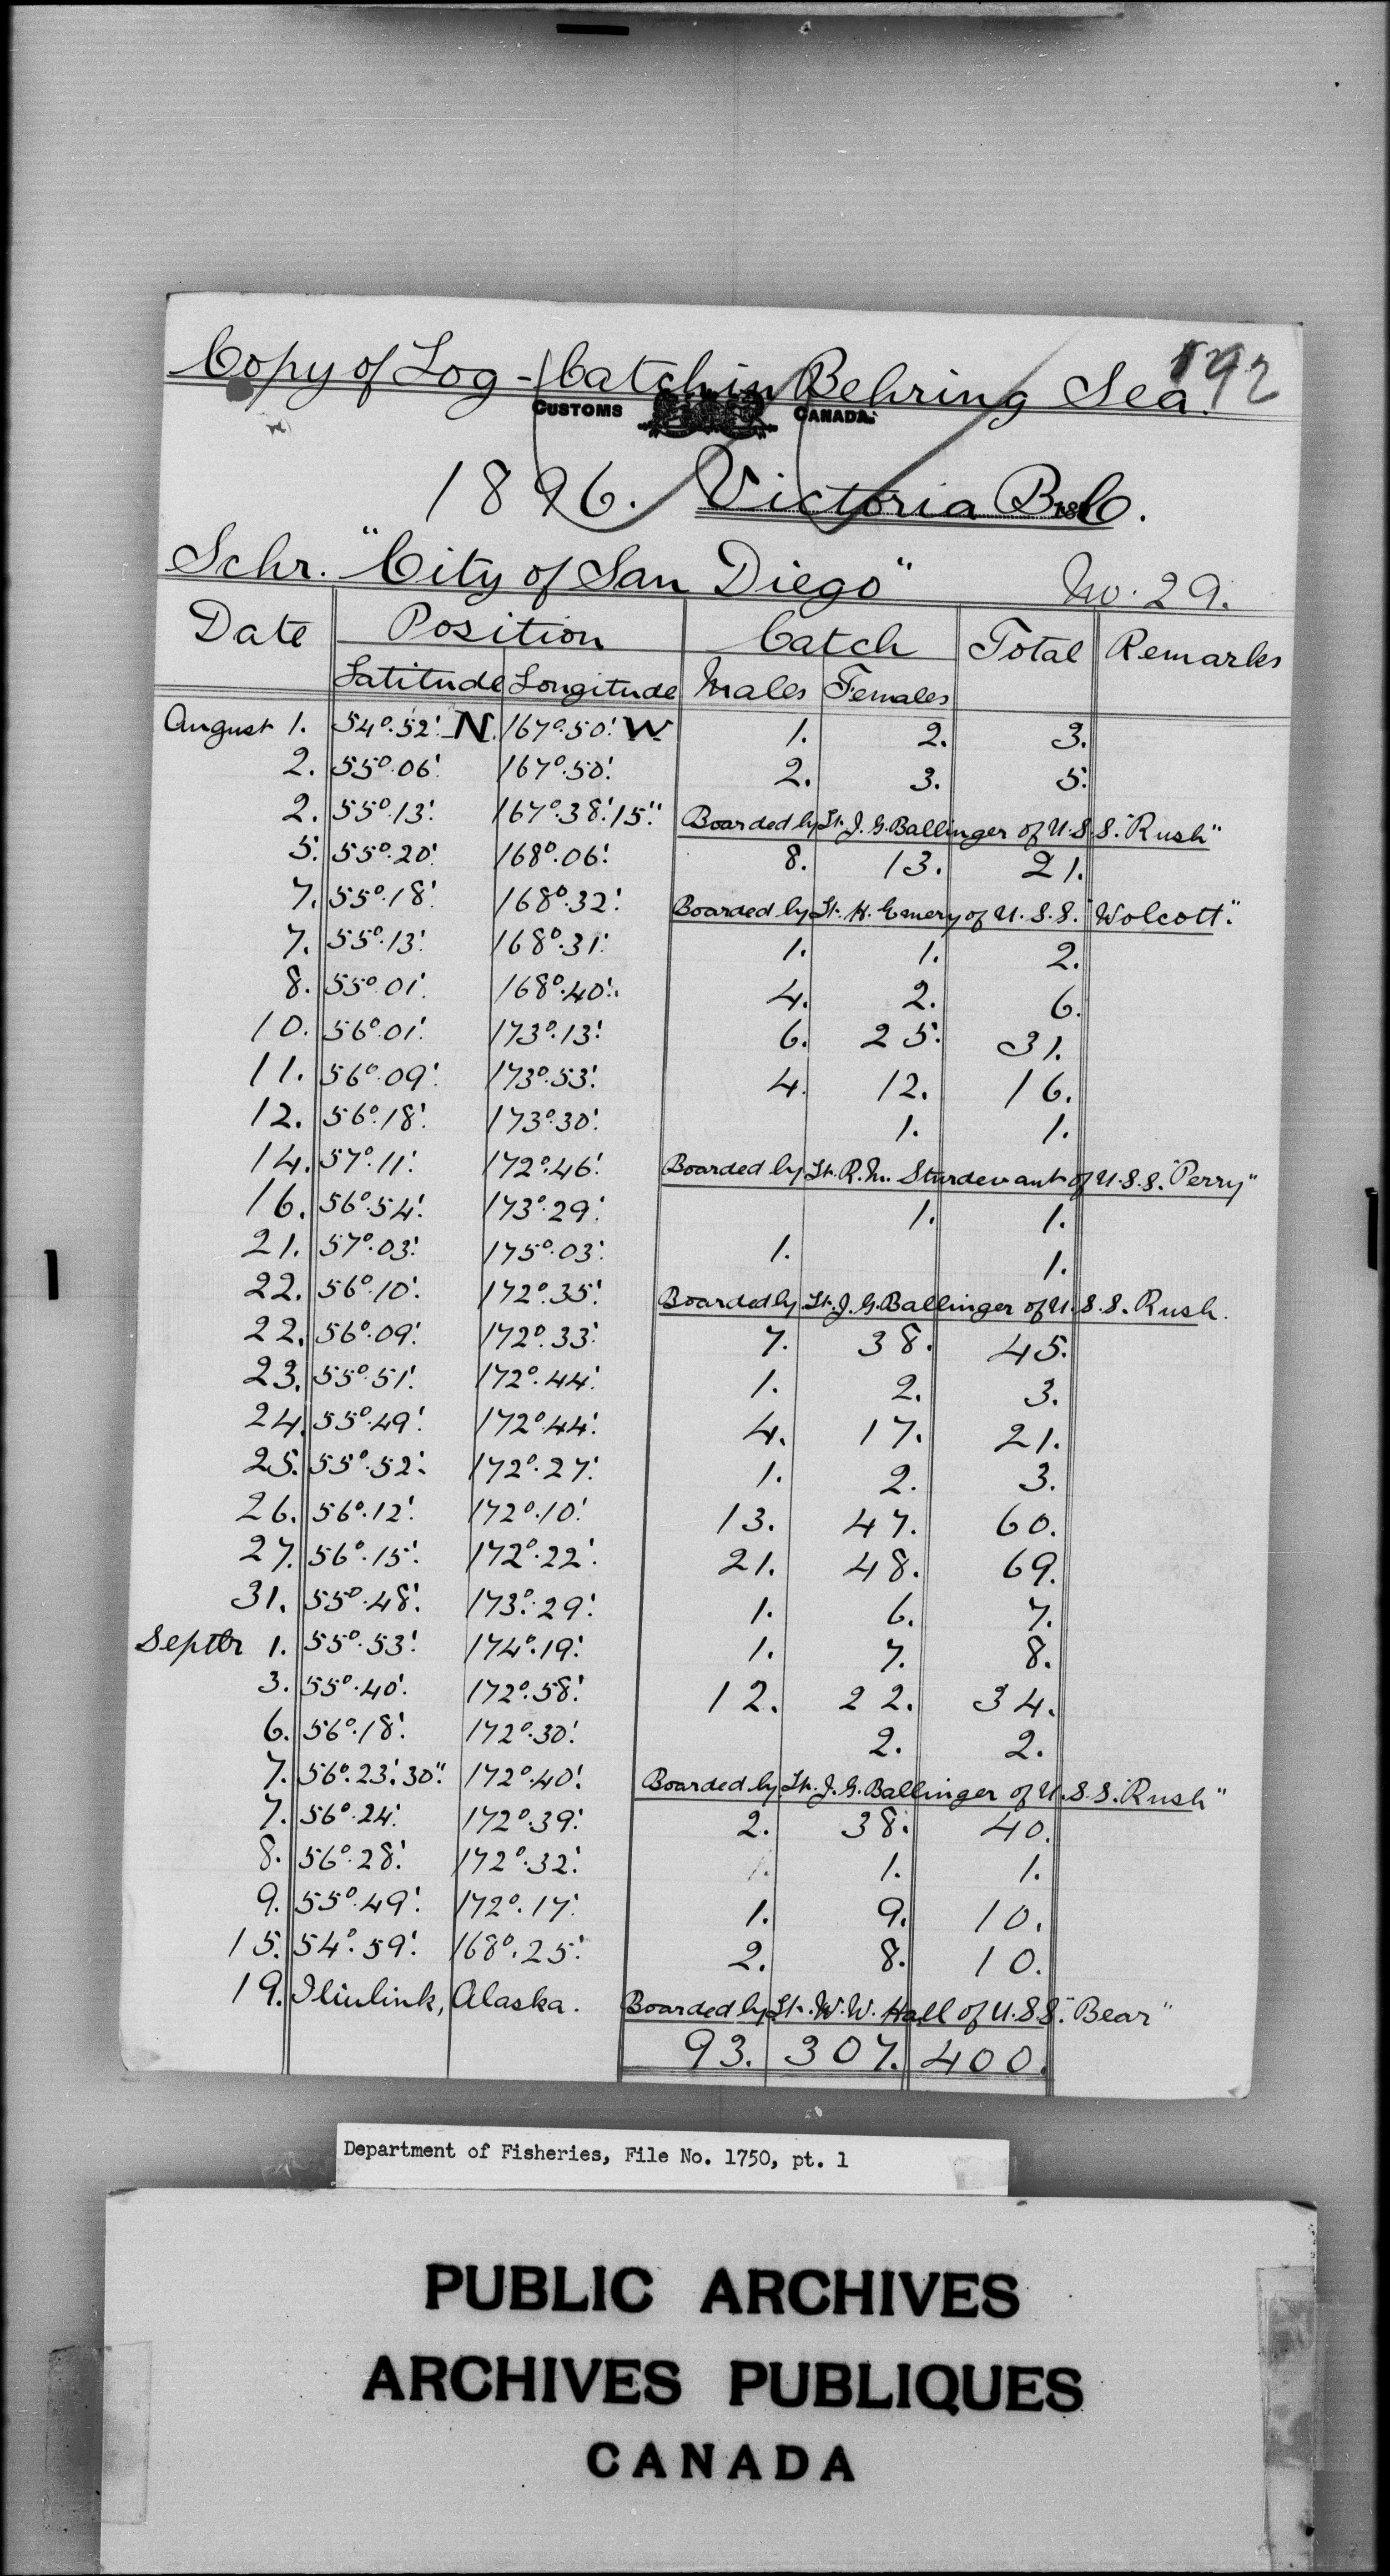 892
Copy of Log - Catch in Behring Sea.
CUSTOMS CANADA.
1896. Victoria B.C.
Schr. "City of San Diego" No. 29.
Date Position Catch Total Remarks
Latitude Longitude Males Females
August 1. 54°.52'. N. 167°.50'. W 1. 2. 3.
2. 55°.06'. 167°.50'. 2. 3. 5.
2. 55°.13'. 167°.38'.15". Boarded by Lt. J. G. Ballinger of U.S.S. "Rush"
5. 55°.20'. 168°.06'. 8. 13. 21.
7. 55°.18'. 168°.32'. Boarded by Lt. H. Emery of U.S.S. "Wolcott".
7. 55°.13'. 168°.31'. 1. 1. 2.
8. 55°.01'. 168°.40'. 4. 2. 6.
10. 56°.01'. 173°.13'. 6. 25. 31.
11. 56°.09'. 173°.53'. 4. 12. 16.
12. 56°.18'. 173°.30'. 1. 1.
14. 57°.11'. 172°.46'. Boarded by Lt. R. M. Sturdevant of U.S.S. "Perry"
16. 56°.54'. 173°.29'. 1. 1.
21. 57°.03'. 175°.03'. 1. 1.
22. 56°.10'. 172°.35'. Boarded by Lt. J. G. Ballinger of U.S.S. Rush.
22. 56°.09'. 172°.33'. 7. 38. 45.
23. 55°.51'. 172°.44'. 1. 2. 3.
24. 55°.49'. 172°.44'. 4. 17. 21.
25. 55°.52'. 172°.27'. 1. 2. 3.
26. 56°.12'. 172°.10'. 13. 47. 60.
27. 56°.15'. 172°.22'. 21. 48. 69.
31. 55°.48'. 173°.29'. 1. 6. 7.
Septbr 1. 55°.53'. 174°.19'. 1. 7. 8.
3. 55°.40'. 172°.58'. 12. 22. 34.
6. 56°.18'. 172°.30'. 2. 2.
7. 56°.23'.30". 172°.40'. Boarded by Lt. J. G. Ballinger of U.S.S. "Rush"
7. 56°.24'. 172°.39'. 2. 38. 40.
8. 56°.28'. 172°.32'. 1. 1.
9. 55°.49'. 172°.17'. 1. 9. 10.
15. 54°.59'. 168°.25'. 2. 8. 10.
19. Iliulink, Alaska. Boarded by Lt. W. W. Hall of U.S.S. "Bear"
93. 307. 400.
Department of Fisheries, File No. 1750, pt. 1
PUBLIC ARCHIVES
ARCHIVES PUBLIQUES
CANADA